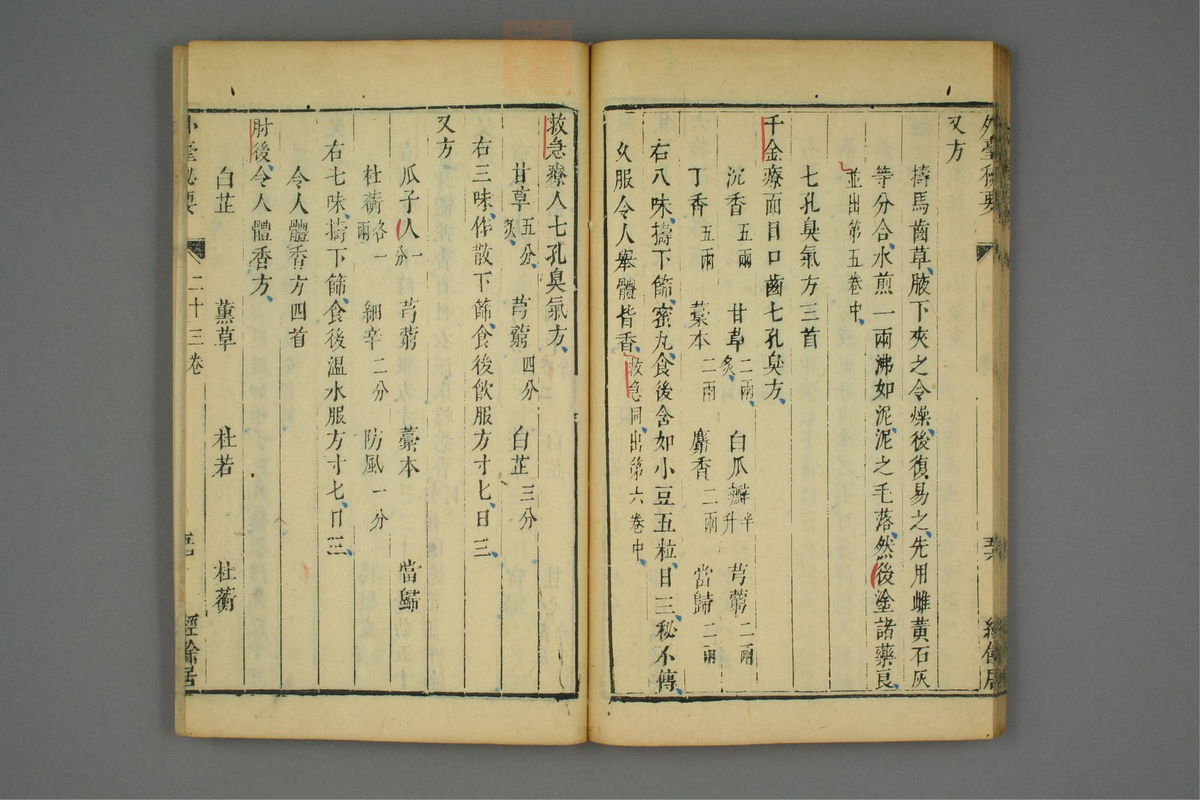 又方
擣馬齒草腋下夾之令燥後復易之先用雌黃石灰
等分合水煎一兩沸如泥泥之毛落然後塗諸藥良
並出第五卷中
七孔臭氣方三首
千金療面目口齒七孔臭方
沉香五兩 甘草二兩炙 白瓜瓣半升 芎藭二兩
丁香五兩 藁本二兩 麝香二兩 當歸二兩
右八味擣下篩蜜丸食後含如小豆五粒日三秘不傳
久服令人舉體皆香救急同出第六卷中
救急療人七孔臭氣方
甘草五分炙 芎藭四分 白芷三分
右三味作散下篩食後飲服方寸匕日三
又方
瓜子人一分 芎藭 藁本 當歸
杜蘅各一兩 細辛二分 防風一分
右七味擣下篩食後温水服方寸匕日三
令人體香方四首
肘後令人體香方
白芷 薰草 杜若 杜蘅
外臺秘要 二十三卷 經餘居